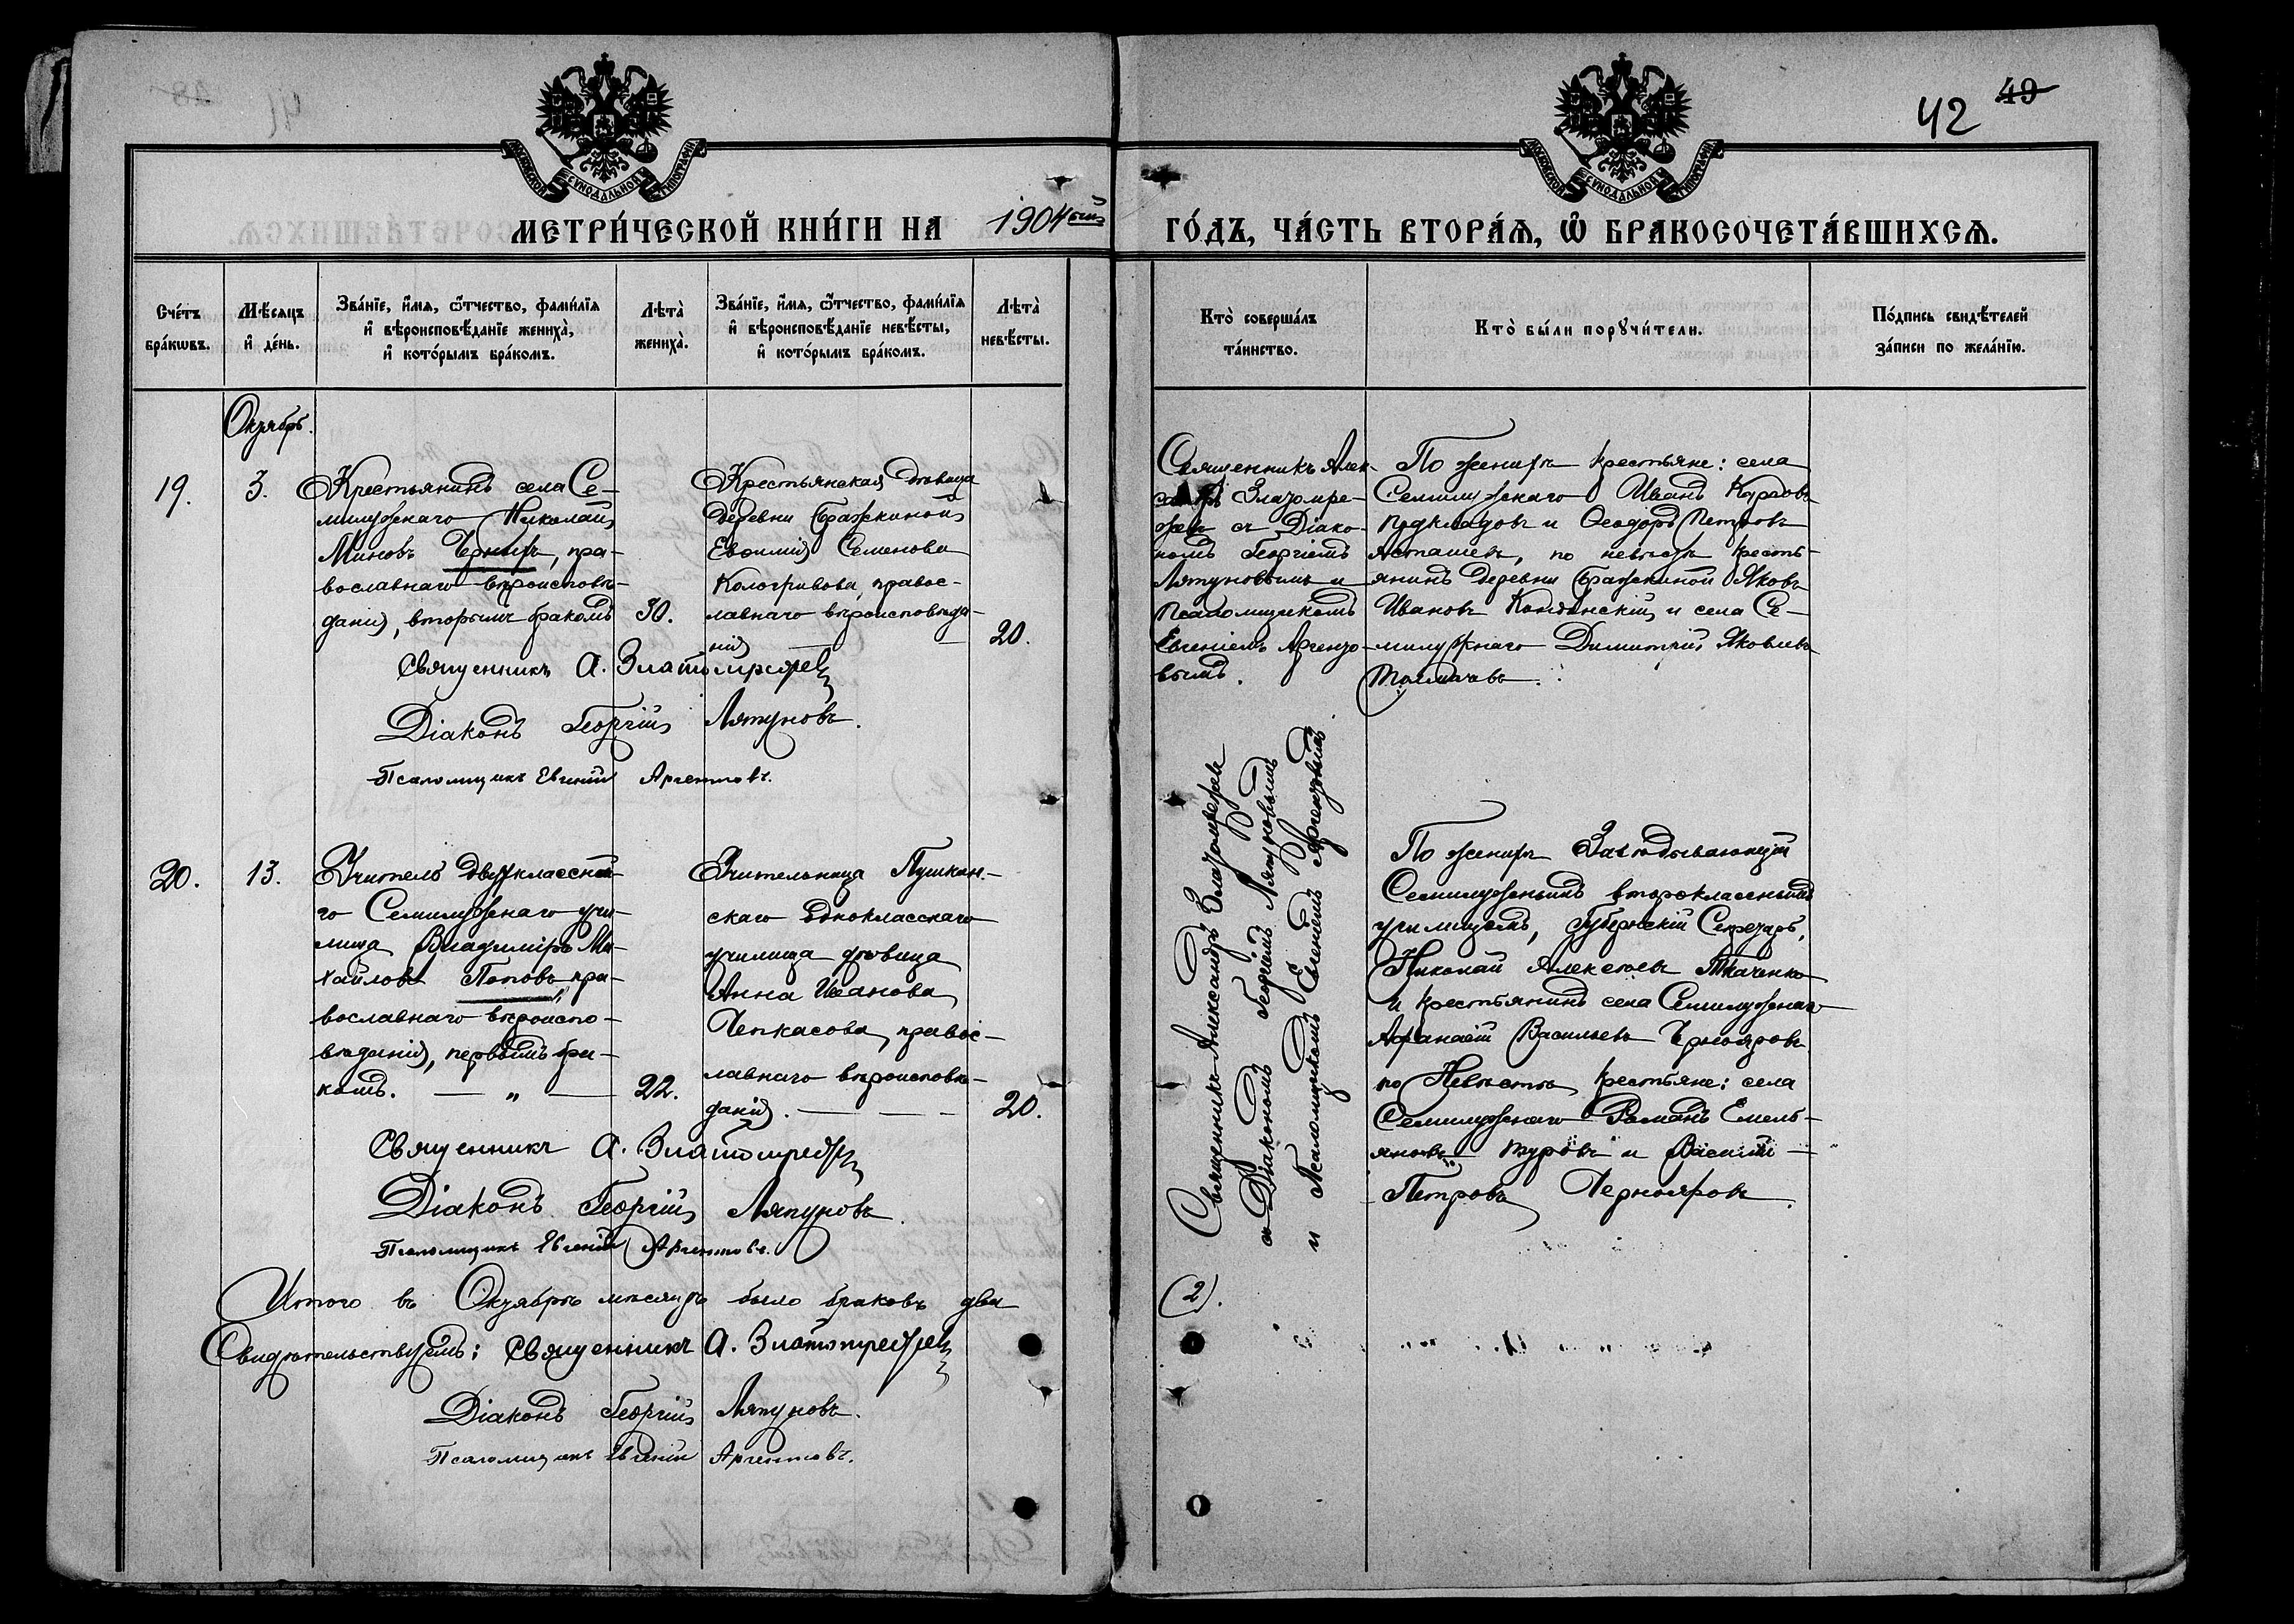 42 49
МЕТРИ́ЧЕСКОЙ КНИ́ГИ НА 1904ый ГО́ДЪ, ЧА́СТЬ ВТОРА́Ѧ, Ѡ҆ БРАКОСОЧЕТА́ВШИХСѦ.
Сче́тъ бра́кѡвъ.
Мѣ́сѧцъ и҆ де́нь.
Зва́нїе, и҆́мѧ, ѻ҆́тчество, фами́лїѧ и҆ вѣроисповѣ́данїе жениха̀, и҆ кото́рымъ бра́комъ.
Лѣта̀ жениха̀.
Зва́нїе, и҆́мѧ, ѻ҆́тчество, фами́лїѧ и҆ вѣроисповѣ́данїе невѣ́сты, и҆ кото́рымъ бра́комъ.
Лѣта̀ невѣ́сты.
Кто̀ соверша́лъ та́инство.
Кто̀ бы́ли порꙋчи́тели.
По́дпись свидѣ́телей за́писи по жела́нїю.
Октябрь.
19.
3.
Крестьянинъ села Се-
милужнаго Николай
Миновъ Черныхъ, пра-
вославнаго вѣроисповѣ-
данія, вторымъ бракомъ
30.
Крестьянская дѣвица
деревни Бражкиной
Евфимія Семенова
Кологривова, правос-
лавнаго вѣроисповѣда-
нія
20.
Священникъ Алек-
сандръ Златомре-
жевъ съ Діако-
номъ Георгіемъ
Ляпуновымъ и
Псаломщикомъ
Евгеніемъ Аргенто-
вымъ.
По женихѣ крестьяне: села
Семилужнаго Иванъ Карповъ
и Ѳеодоръ Петровъ
Асташевъ, по невѣстѣ кресть-
янинъ деревни Бражкиной Яковъ
Ивановъ Кондинскій и села Се-
милужнаго Димитрій Яковлевъ
Толмачевъ.
Священникъ А. Златомрежев
Діаконъ Георгій Ляпуновъ.
Псаломщикъ Евгеній Аргентовъ.
20.
13.
Учитель двухкласснa-
го Семилужнаго учи-
лища Владиміръ Ми-
хайловъ Поповъ, пра-
вославнаго вѣроиспо-
вѣданія, первымъ бра-
комъ. — „ —
22.
Учительница Пушкин-
скаго одноклассаго
училища дѣвица
Анна Иванова
Чепкасова, правос-
лавнаго вѣроисповѣ-
данія.
20.
Священникъ Александръ Златомрежевъ
съ Діакономъ Георгіемъ Ляпуновымъ
и Псаломщикомъ Евгеніемъ Аргентовымъ
По женихѣ Завѣдывающій
Семилужнымъ второкласнымъ
училищемъ, Губернскій Секретарь,
Николай Алексѣевъ Ткаченко
и крестьянинъ села Семилужнаго
Афанасій Васильевъ Чернояровъ
по Невѣстѣ крестьяне: села
Семилужнаго Романъ Емель-
яновъ Туровъ и Василій
Петровъ Чернояровъ.
Священникъ А. Златомрежев
Діаконъ Георгій Ляпуновъ.
Псаломщикъ Евгеній Аргентовъ.
Итого въ Октябрѣ мѣсяцѣ было браковъ два
(2).
Свидѣтельствуемъ: Священникъ А. Златомрежев
Діаконъ Георгій Ляпуновъ.
Псаломщикъ Евгеній Аргентовъ.